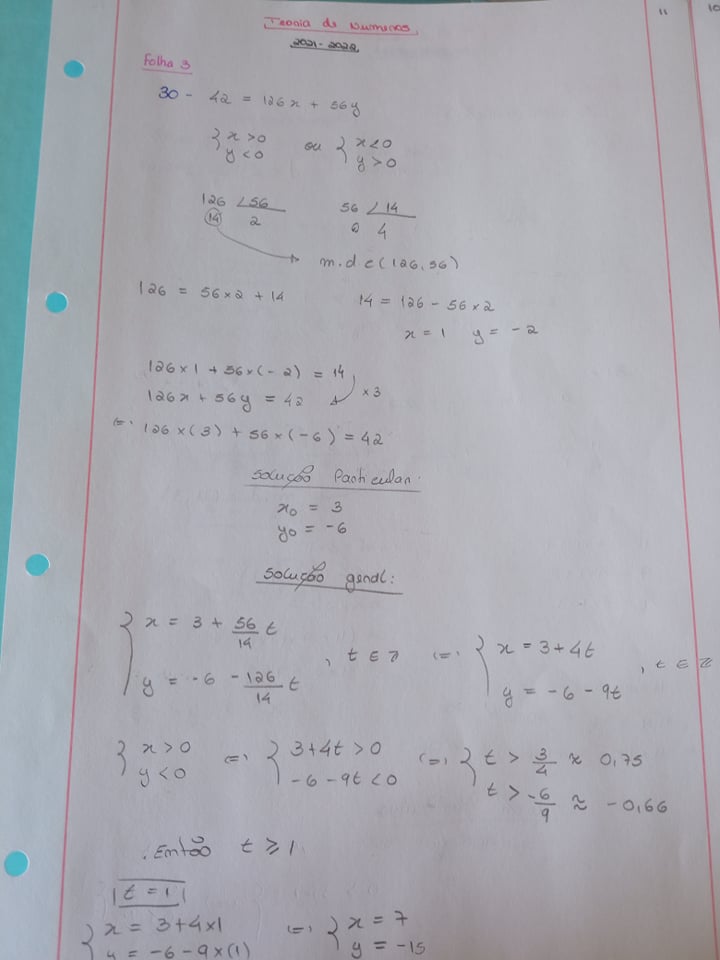 Teoria de Numeros.
2021-2022
11
10
Folha 3
30 - 42 = 126x + 56y
{ x > 0 ou { x < 0
y < 0 y > 0
126 ∠56 56 ∠14
14 2 0 4
m.d.c(126,56)
126 = 56×2 + 14 14 = 126 - 56×2
x = 1 y = -2
126×1 + 56×(-2) = 14
126x + 56y = 42 ×3
(=) 126×(3) + 56×(-6) = 42
Solução Particular:
x0 = 3
y0 = -6
Solução geral:
{ x = 3 + 56/14 t , t ∈ Z (=) { x = 3+4t , t ∈ Z
y = -6 - 126/14 t y = -6 - 9t
{ x > 0 (=) { 3+4t > 0 (=) { t > 3/4 ≈ 0,75
y < 0 -6 - 9t < 0 t > -6/9 ≈ -0,66
. Então t ⩾ 1
|t = 1|
{ x = 3+4×1 (=) { x = 7
y = -6 - 9×(1) y = -15